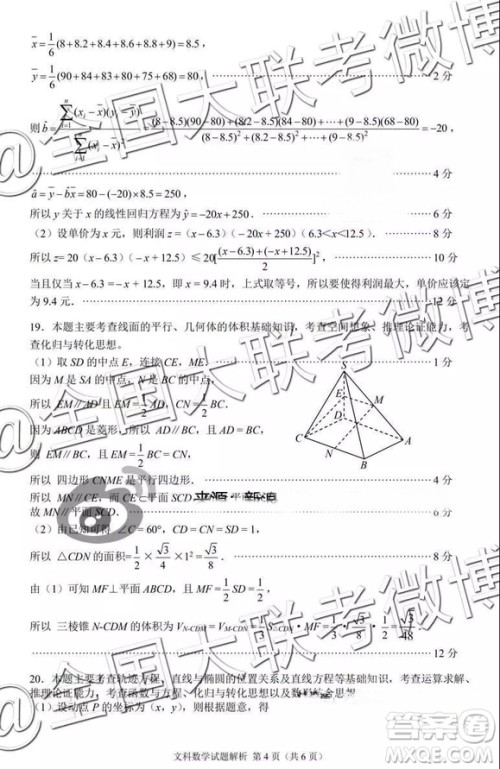 x̄=1/6(8+8.2+8.4+8.6+8.8+9)=8.5，
ȳ=1/6(90+84+83+80+75+68)=80， 2 分
则b̂=∑(xᵢ-x̄)(yᵢ-ȳ)/∑(xᵢ-x̄)²=(8-8.5)(90-80)+(8.2-8.5)(84-80)+⋯+(9-8.5)(68-80)/(8-8.5)²+(8.2-8.5)²+⋯+(9-8.5)²=-20，
4 分
â=ȳ-b̂x̄=80-(-20)×8.5=250，
所以 y 关于 x 的线性回归方程为 ŷ=-20x+250． 6 分
（2）设单价为 x 元，则利润 z=（x-6.3）（-20x+250）（6.3<x<12.5）． 8 分
所以 z=20（x-6.3）（-x+12.5）≤20[(x-6.3)+(-x+12.5)/2]²， 10 分
当且仅当 x-6.3=-x+12.5，即 x=9.4 时，上式取等号，所以要使得利润最大，单价应该定
为 9.4 元． 12 分
19．本题主要考查线面的平行、几何体的体积基础知识，考查空间想象、推理论证能力，考
查化归与转化思想．
（1）取 SD 的中点 E，连接 CE，ME． 1 分
因为 M 是 SA 的中点，N 是 BC 的中点，
所以 EM∥AD 且 EM=1/2AD，CN=1/2BC．
因为 ABCD 是菱形，所以 AD∥BC，
所以 EM∥BC，且 EM=1/2BC=CN，
所以 四边形 CNME 是平行四边形． 4 分
所以 MN∥CE，而 CE⊂平面 SCD， 平面
故 MN∥平面 SCD． 6 分
S
E
M
D
C
A
N
B
（2）由已知可得 ∠C=60°，CD=CN=SD=1，
所以 △CDN 的面积=1/2×√3/4×1²=√3/8． 8 分
由（1）可知 MF⊥平面 ABCD，且 MF=1/2SD=1/2，
所以 三棱锥 N-CDM 的体积为 V_N-CDM=V_M-CDN=1/3S_△CDN·MF=1/3×√3/8×1/2=√3/48．
12 分
20．本题主要考查轨迹方程，直线与椭圆的位置关系及直线方程等基础知识，考查运算求解、
推理论证能力，考查函数与方程、化归与转化思想以及数 思想．
（1）设动点 P 的坐标为（x，y），则根据题意，得
文科数学试题解析 第 4 页（共 6 页）
@全国大联考微博
@全国大联考微博